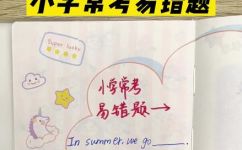 小学常考易错题
Super lucky
小学常考
易错题→
In summer, we go ____.